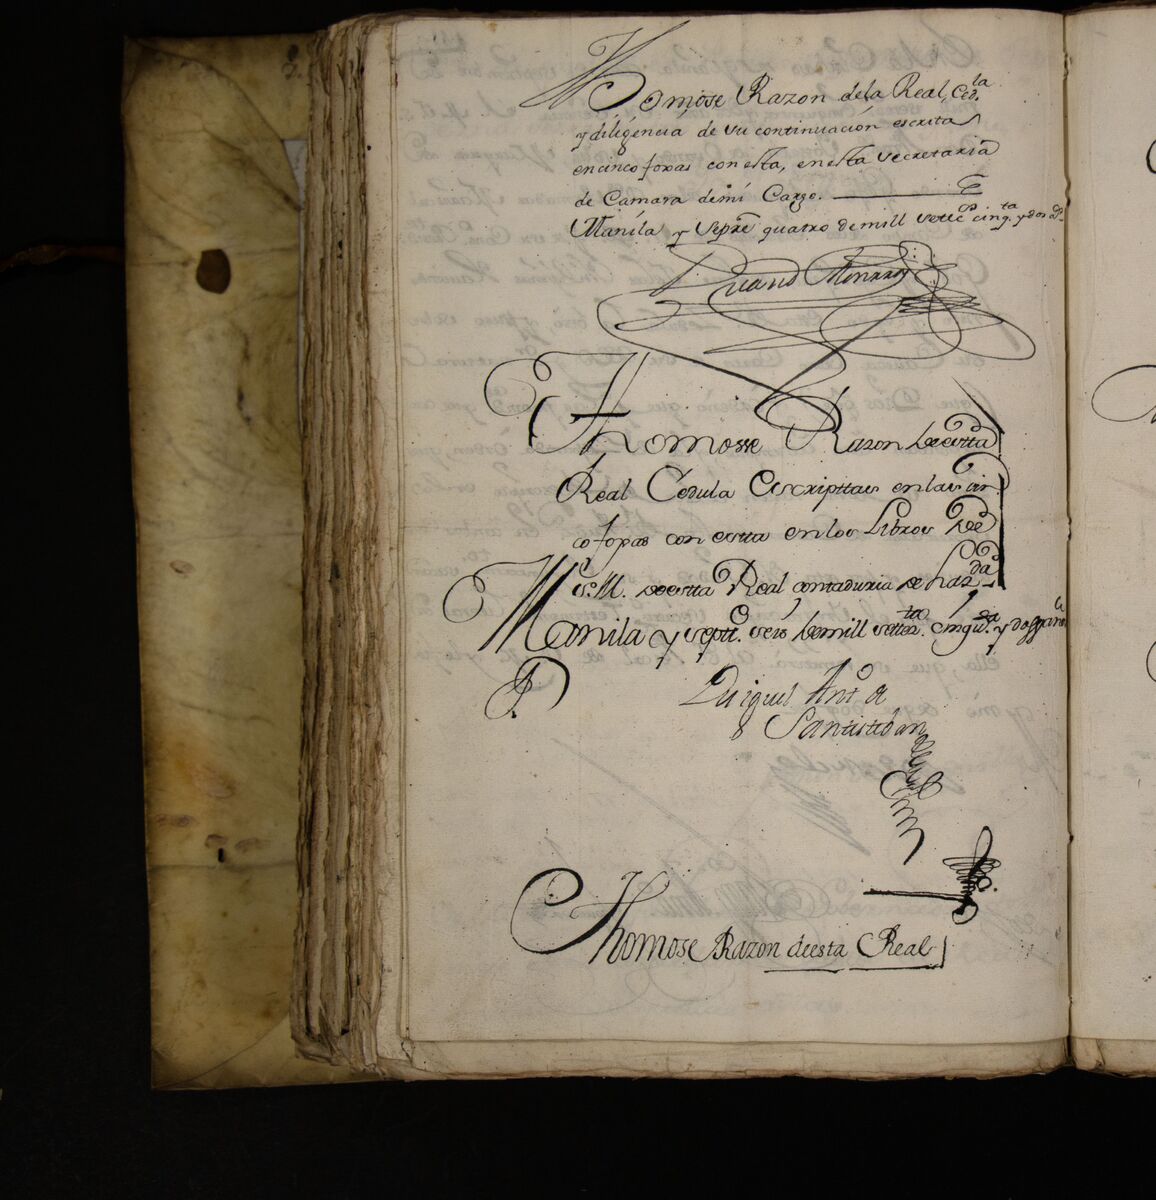 Thomose Razon dela Real Ced.la
y diligencia de su continuación escrita
en cinco foxas con esta, en esta secretaria
de Camara demi Cargo.
Manila y Sepre quatro demill setec.s cinq.ta y dos a.s
Juan Monroy
Thomosse Razon de estta
Real Cedula Escripttas enlas sin
co foxas con estta enlos Libros De
S.M. de estta Real contaduria de Haz.da
Manila y Septt.e seis de mill settez.tos cinqu.ta y dos años
Miguel Ant.o de
Santistiban
Thomose Razon deesta Real